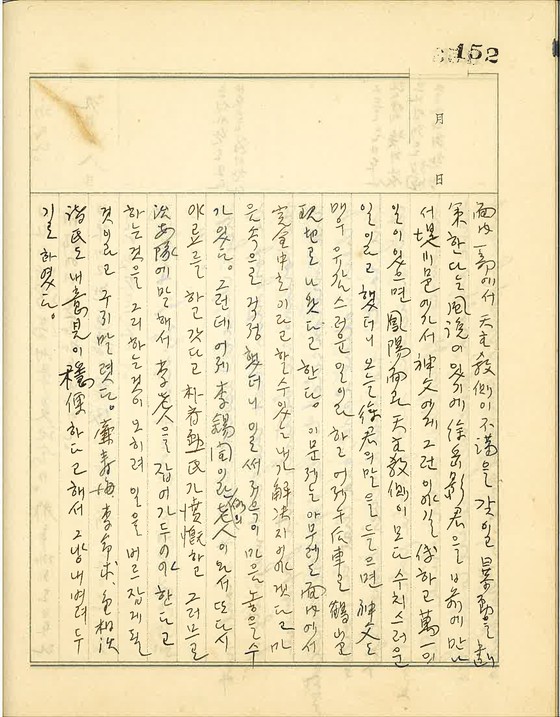 152
月
日
面內 一部에서 天主敎側이 不滿을 갖이고 暴動을 劃
策한다는 風說이 있기에 徐 君을 日前에 만나
서 堤川邑에 가서 神父에게 그런 이야길 傳하고 萬一의
일이 있으면 鳳陽面과 天主敎側이 모다 수치스러운
일이라고 했더니 오늘 徐君의 말을 들으면 神父도
매우 유감스러운 일이라 하고 어제 午后車로 鶴山
現地로 나왔다고 한다. 이 문제는 아무래도 面內에서
完全中立이라고 할 수 있는 내가 解決지어야겠다고 마
음속으로 걱정했더니 이일 써 저윽이 마음 놓을 수
가 있었다. 그런데 어제 李錫 이란 老人이 와서 또다시
야료를 하고 갔다고 朴 氏가 憤慨하고 그러므로
治安隊에 말해서 李老人을 잡어 가두어야 한다고
하는 것을 그리하는 것이 오히려 일을 버르집게 될
것이라고 구지 말렸다. 李 求 相
諸氏도 내 意見이 穩便하다고 해서 그냥 내벼려 두
기로 하였다.